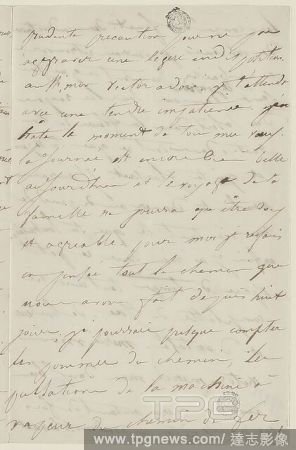 prudente précaution pour ne pas
aggraver une légère indisposition
mon Victor adoré, j'attends
avec une tendre impatience j'ai
hâte le moment de
la journée est encore bien belle
aujourd'hui et le voyage de la
famille ne pourra qu'être doux
et agréable. pour moi je refais
en pensée tout le chemin que
nous avons fait depuis huit
jours, je pourrais presque compter
en sommes du chemin, les
pulsations de la machine à
vapeur du chemin de fer
TPG
www.tpgnews.com / 達志影像